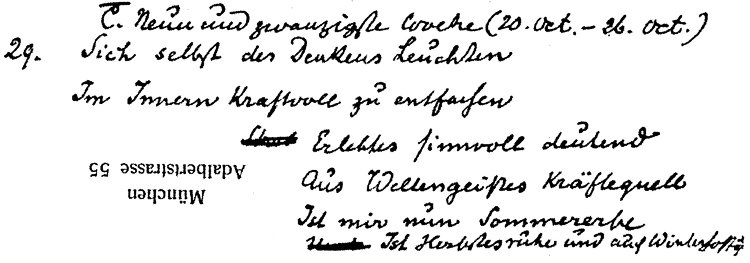 C. Neun und zwanzigste Woche (20. Oct. – 26. Oct.)
29. Sich selbst des Denkens Leuchten
Im Innern kraftvoll zu entfachen
Erlebtes sinnvoll deutend
Aus Weltengeistes Kräftequell
Ist mir nun Sommererbe
Ist Herbstesruhe und auch Winterhoffng
München
Adalbertstrasse 55